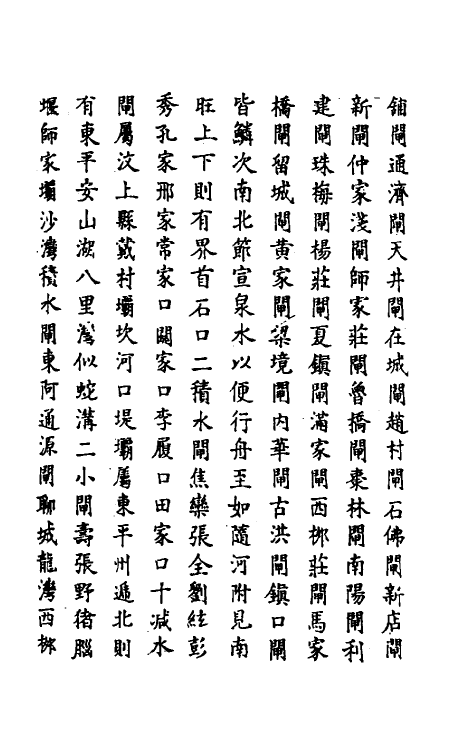 舖閘通濟閘天井閘在城閘趙村閘石佛閘新店閘
新閘仲家淺閘師家莊閘魯橋閘棗林閘南陽閘利
建閘珠梅閘楊莊閘夏鎮閘滿家閘西栁莊閘馬家
橋閘留城閘黃家閘梁境閘內華閘古洪閘鎮口閘
皆鱗次南北節宣泉水以便行舟至如隨河附見南
旺上下則有界首石口二積水閘焦欒張全劉紘彭
秀孔家邢家常家口闗家口李履口田家口十減水
閘屬汶上縣戴村壩坎河口堤壩屬東平州遞北則
有東平安山湖八里灣似蛇溝二小閘壽張野猪腦
堰師家壩沙灣積水閘東阿通源閘聊城龍灣西栁